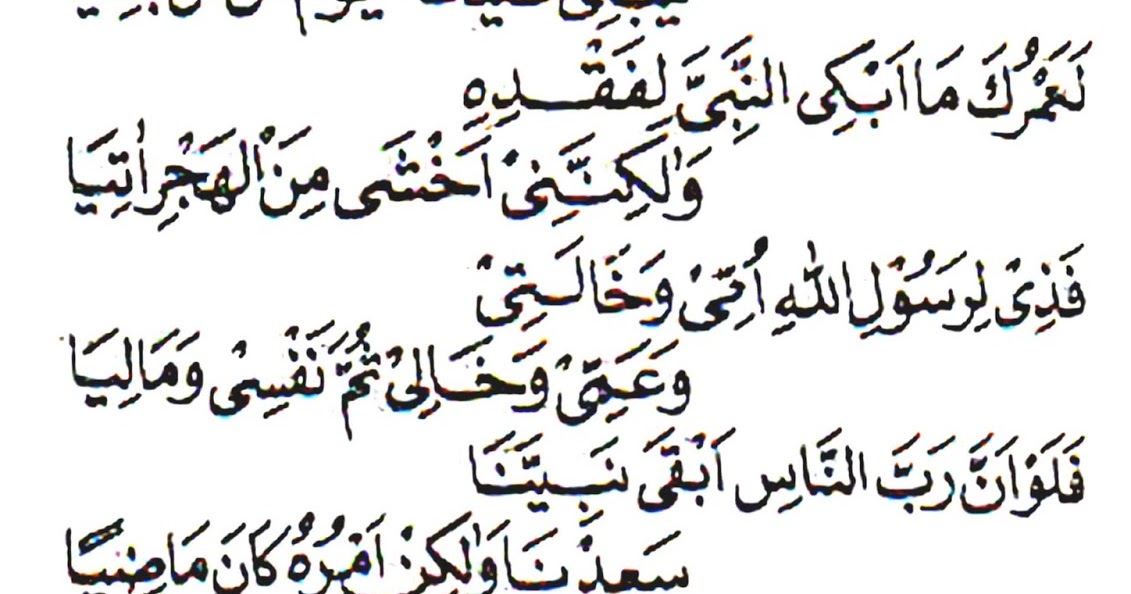 لَعَمْرُكَ مَا اَبْكِى النَّبِىَّ لِفَقْدِهِ
وَلٰكِنَّنِىْ اَخْشَى مِنَ الْهَجْرِاٰتِيَا
فَذِىْ لِرَسُوْلِ اللهِ اُمِّىْ وَخَالَتِىْ
وَعَمِّىْ وَخَالِىْ ثُمَّ نَفْسِىْ وَمَالِيَا
فَلَوْاَنَّ رَبَّ النَّاسِ اَبْقَى نَبِيَّنَا
سَعِدْنَا وَلٰكِنْ اَمْرُهُ كَانَ مَاضِيًا